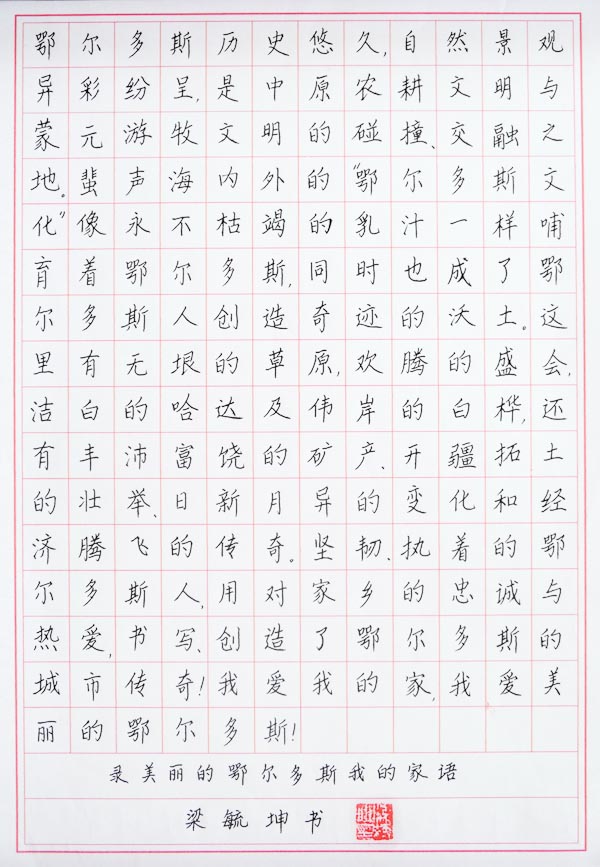 鄂尔多斯历史悠久,自然景观
异彩纷呈,是中原农耕文明与
蒙元游牧文明的碰撞、交融之
地。蜚声海内外的“鄂尔多斯文
化”像永不枯竭的乳汁一样哺
育着鄂尔多斯,同时也成了鄂
尔多斯人创造奇迹的沃土。这
里有无垠的草原,欢腾的盛会,
洁白的哈达及伟岸的白桦,还
有丰沛富饶的矿产、开疆拓土
的壮举、日新月异的变化和经
济腾飞的传奇。坚韧、执着的鄂
尔多斯人,用对家乡的忠诚与
热爱,书写、创造了鄂尔多斯的
城市传奇!我爱我的家,我爱美
丽的鄂尔多斯!
录美丽的鄂尔多斯我的家语
梁毓坤书